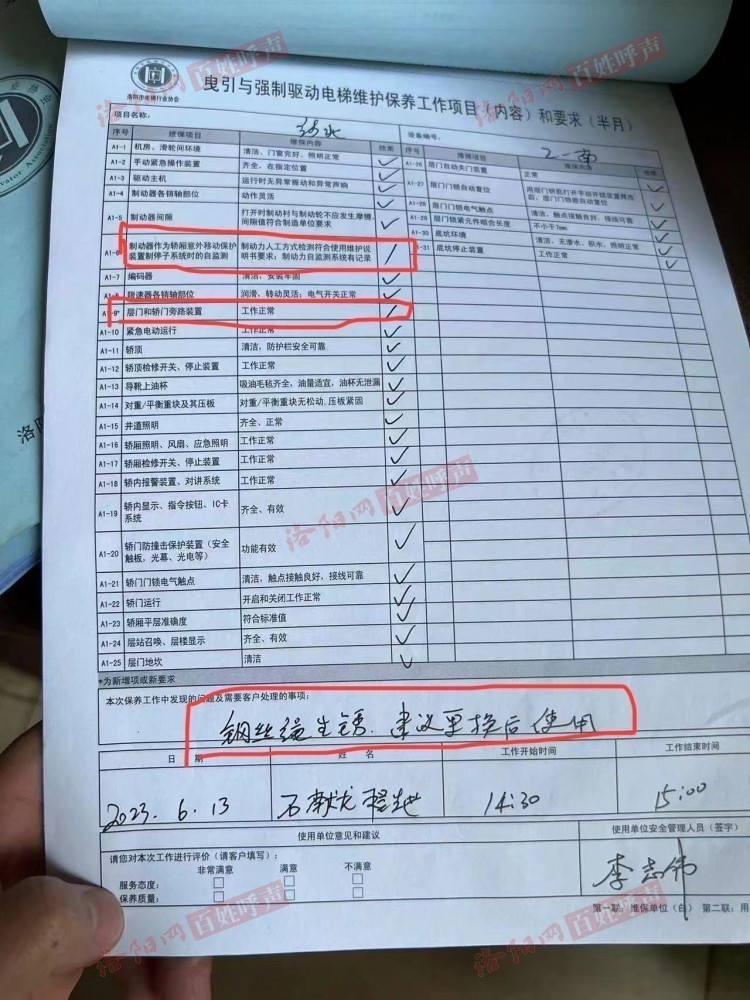 洛阳市电梯行业协会
曳引与强制驱动电梯维护保养工作项目（内容）和要求（半月）
项目名称:
设备编号:
2-南
序号 维保项目 维保内容 结果 序号 维保项目 维保内容 结果
A1-1 机房、滑轮间环境 清洁、门窗完好、照明正常 ✓
A1-2 手动紧急操作装置 齐全、在指定位置 ✓
A1-3 驱动主机 运行时无异常振动和异常声响 ✓
A1-4 制动器各销轴部位 动作灵活 ✓
A1-5 制动器间隙 打开时制动衬与制动轮不应发生摩擦,
间隙值符合制造单位要求 ✓
A1-6 制动器作为轿厢意外移动保护
装置制停子系统时的自监测
制动力人工方式检测符合使用维护说
明书要求；制动力自监测系统有记录 /
A1-7 编码器 清洁，安装牢固 ✓
A1-8 限速器各销轴部位 润滑，转动灵活；电气开关正常 ✓
A1-9* 层门和轿门旁路装置 工作正常 /
A1-10 紧急电动运行 工作正常 ✓
A1-11 轿顶 清洁，防护栏安全可靠 ✓
A1-12 轿顶检修开关、停止装置 工作正常 ✓
A1-13 导靴上油杯 吸油毛毡齐全，油量适宜，油杯无泄漏 ✓
A1-14 对重/平衡重块及其压板 对重/平衡重块无松动,压板紧固 ✓
A1-15 井道照明 齐全、正常 ✓
A1-16 轿厢照明、风扇、应急照明 工作正常 ✓
A1-17 轿厢检修开关、停止装置 工作正常 ✓
A1-18 轿内报警装置、对讲系统 工作正常 ✓
A1-19 轿内显示、指令按钮、IC卡
系统 齐全、有效 ✓
A1-20 轿门防撞击保护装置（安全
触板，光幕、光电等） 功能有效 ✓
A1-21 轿门门锁电气触点 清洁，触点接触良好，接线可靠 ✓
A1-22 轿门运行 开启和关闭工作正常 ✓
A1-23 轿厢平层准确度 符合标准值 ✓
A1-24 层站召唤、层楼显示 齐全、有效 ✓
A1-25 层门地坎 清洁 ✓
A1-26 层门自动关门装置 正常 ✓
A1-27 层门门锁自动复位 ✓
A1-28 层门门锁电气触点 清洁，触点接触良好，接线可靠 ✓
A1-29 层门锁紧元件啮合长度 不小于7mm ✓
A1-30 底坑环境 清洁，无渗水、积水，照明正常 ✓
A1-31 底坑停止装置 工作正常 ✓
*为新增项或新要求
本次保养工作中发现的问题及需要客户处理的事项:
钢丝绳生锈，建议更换后使用
日 期 姓 名 工作开始时间 工作结束时间
2023. 6. 13 14:30 15:00
使用单位意见和建议 使用单位安全管理人员（签字）
请您对本次工作进行评价（请客户填写）:
非常满意 满意 不满意
服务态度: □ □ □
保养质量: □ □ □
李志伟
第一联：维保单位（白） 第二联：用
洛阳网 百姓呼声